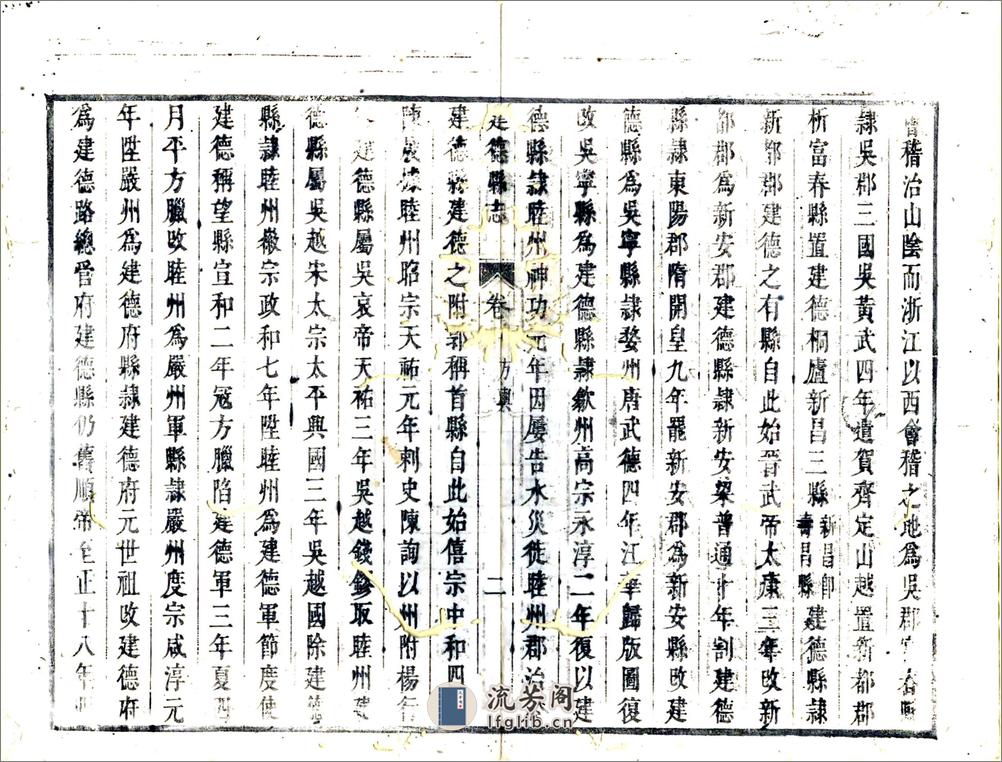 會稽治山陰而浙江以西會稽之地為吳郡富春縣
隸吳郡三國吳黃武四年遣賀齊定山越置新都郡
析富春縣置建德桐廬新昌三縣新昌即壽昌縣建德縣隸
新都郡建德之有縣自此始晉武帝太康三年改新
都郡為新安郡建德縣隸新安梁普通 年割建德
縣隸東陽郡隋開皇九年罷新安郡為新安縣改建
德縣為吳寧縣隸婺州唐武德四年江 歸版圖復
改吳寧縣為建德縣隸歙州高宗永淳二年復以建
德縣隸睦州神功元年因屢告水災徙睦州郡治
建德縣志 卷 方輿 二
建德縣建德之附郭稱首縣自此始僖宗中和四
陳晟據睦州昭宗天祐元年刺史陳詢以州附楊行
建德縣屬吳哀帝天祐三年吳越錢鏐取睦州建
德縣屬吳越宋太宗太平興國三年吳越國除建德
縣隸睦州徽宗政和七年陞睦州為建德軍節度使
建德稱望縣宣和二年寇方臘陷建德軍三年夏四
月平方臘改睦州為嚴州軍縣隸嚴州度宗咸淳元
年陞嚴州為建德府縣隸建德府元世祖改建德府
為建德路總管府建德縣仍舊順帝至正十八年
流芳阁
lfglib.cn